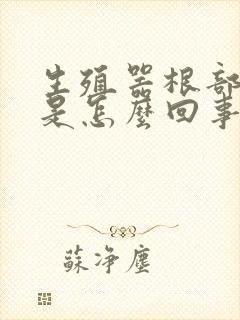 生殖器根部
是怎麼回事
蘇淨塵